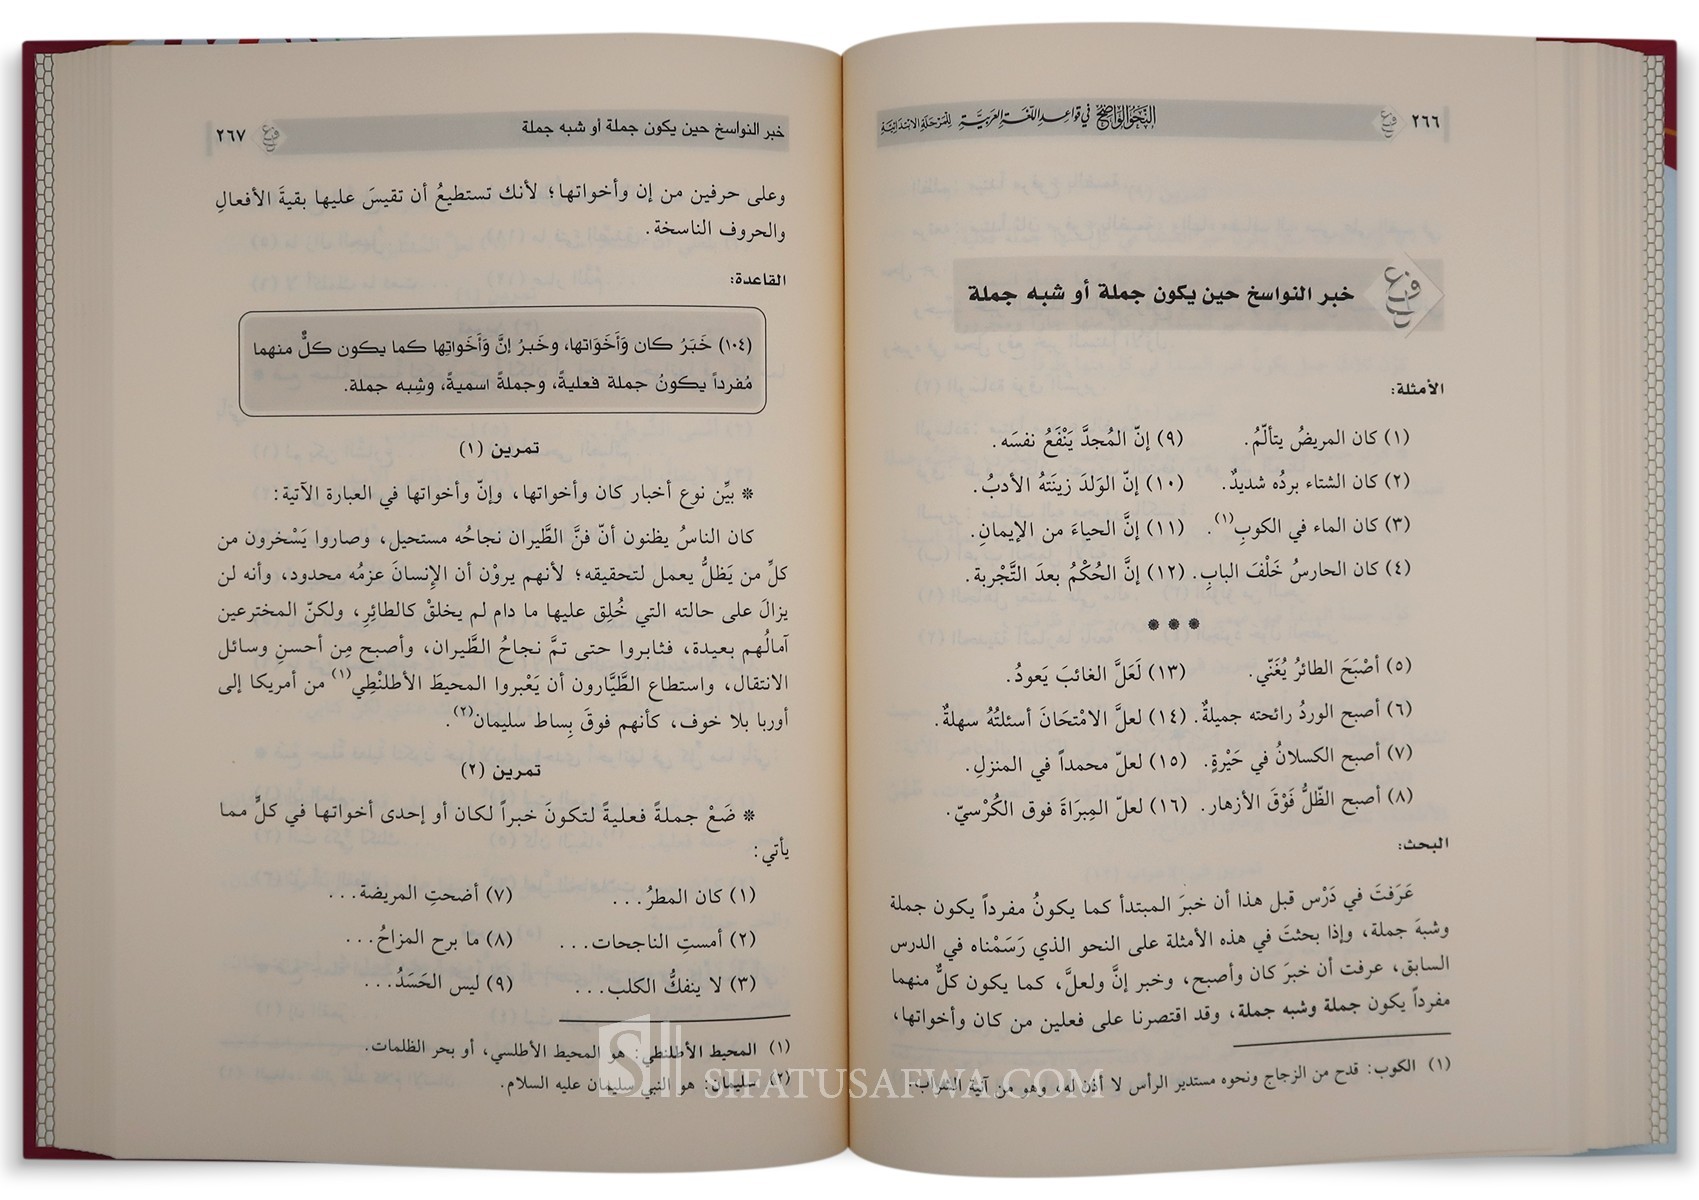 ٢٦٦
النحو الواضح في قواعد اللغة العربية للمرحلة الابتدائية
خبر النواسخ حين يكون جملة أو شبه جملة
الأمثلة:
(١) كان المريضُ يتألّمُ. (٩) إنّ المُجدَّ يَنْفَعُ نفسَه.
(٢) كان الشتاء بردُه شديدٌ. (١٠) إنّ الوَلدَ زينَتهُ الأدبُ.
(٣) كان الماء في الكوبِ(١). (١١) إنَّ الحياءَ من الإيمانِ.
(٤) كان الحارسُ خَلْفَ البابِ. (١٢) إنَّ الحُكْمُ بعدَ التَّجْربة.
* * *
(٥) أصْبَحَ الطائرُ يُغَنّي. (١٣) لَعَلَّ الغائبَ يَعودُ.
(٦) أصبح الوردُ رائحته جميلةٌ. (١٤) لعلَّ الامْتحَانَ أسئلتُهُ سهلةٌ.
(٧) أصبح الكسلانُ في حَيْرةٍ. (١٥) لعلّ محمداً في المنزلِ.
(٨) أصبح الظّلُّ فَوْقَ الأزهار. (١٦) لعلّ المِبرَاةَ فوق الكُرْسيّ.
البحث:
عَرَفتَ في دَرْس قبل هذا أن خبرَ المبتدأ كما يكونُ مفرداً يكون جملة
وشبهَ جملة، وإذا بحثتَ في هذه الأمثلة على النحو الذي رَسَمْناه في الدرس
السابق، عرفت أن خبرَ كان وأصبح، وخبر إنَّ ولعلَّ، كما يكون كلٌّ منهما
مفرداً يكون جملة وشبه جملة، وقد اقتصرنا على فعلين من كان وأخواتها،
(١) الكوب: قدح من الزجاج ونحوه مستدير الرأس لا أذن له، وهو من آنية الشراب.
خبر النواسخ حين يكون جملة أو شبه جملة
٢٦٧
وعلى حرفين من إن وأخواتها؛ لأنك تستطيعُ أن تقيسَ عليها بقيةَ الأفعالِ
والحروف الناسخة.
القاعدة:
(١٠٤) خَبَرُ كان وَأَخَوَاتها، وخَبرُ إنَّ وَأَخَواتِها كما يكون كلٌّ منهما
مُفرداً يكونُ جملة فعليةً، وجملةً اسميةً، وشِبه جملة.
تمرين (١)
* بيِّن نوع أخبار كان وأخواتها، وإنّ وأخواتها في العبارة الآتية:
كان الناسُ يظنون أنّ فنَّ الطَّيران نجاحُه مستحيل، وصاروا يَسْخرون من
كلِّ من يَظلُّ يعمل لتحقيقه؛ لأنهم يروْن أن الإنسانَ عزمُه محدود، وأنه لن
يزالَ على حالته التي خُلِق عليها ما دام لم يخلقْ كالطائِرِ، ولكنّ المخترعين
آمالُهم بعيدة، فثابروا حتى تمَّ نجاحُ الطَّيران، وأصبح مِن أحسنِ وسائل
الانتقال، واستطاع الطَّيَّارون أن يَعْبروا المحيطَ الأطلنْطِي(١) من أمريكا إلى
أوربا بلا خوف، كأنهم فوقَ بِساط سليمان(٢).
تمرين (٢)
* ضَعْ جملةً فعليةً لتكونَ خبراً لكان أو إحدى أخواتها في كلٍّ مما
يأتي:
(١) كان المطرُ... (٧) أضحتِ المريضة...
(٢) أمستِ الناجحات... (٨) ما برح المزاحُ...
(٣) لا ينفكُّ الكلب... (٩) ليس الحَسَدُ...
(١) المحيط الأطلنطي: هو المحيط الأطلسي، أو بحر الظلمات.
(٢) سليمان: هو النبي سليمان عليه السلام.
SIFATUSAFWA.COM